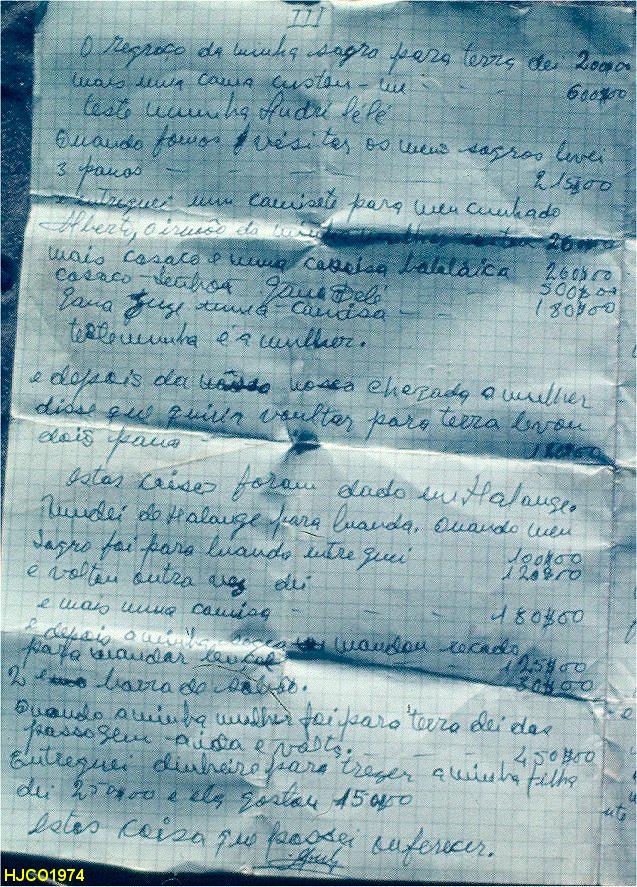 III
O regroço da minha sogro para terra dei 200$00
mais uma cama custou-me - - - 600$00
teste munha André Pélé
Quando fomos vésitar os meus sogros levei
3 panos - - - - 215$00
e entreguei um camisete para meu cunhado
Alberto, o irmão da minha mulher custou 260$00
mais casaco e numa camisa balalaica 260$00
casaco - senhora Gana Pelé 500$00
Gana numa - camisa - - 180$00
testeminha é a mulher.
e depois da nossa chegada a mulher
disse que quiria voultar para terra levou
dois pano - 180$00
estas coises foram dado em Malange.
Mudei de Malange para Luanda. Quando meu
sogro foi para Luanda entreguei 100$00
e voltou outra vez dei 120$00
e mais numa camisa - - - 180$00
e depois a minha sogra mandou recado
para mandar lençol 125$00
2 barra de sabão. 30$00
Quando a minha mulher foi para terra dei das
passagem - aida e volta. - - - 450$00
Entreguei dinheiro para trezer a minha filha
dei 250$00 e ela gastou 150$00
estas coisa que possei ouferecer.
HJCO1974